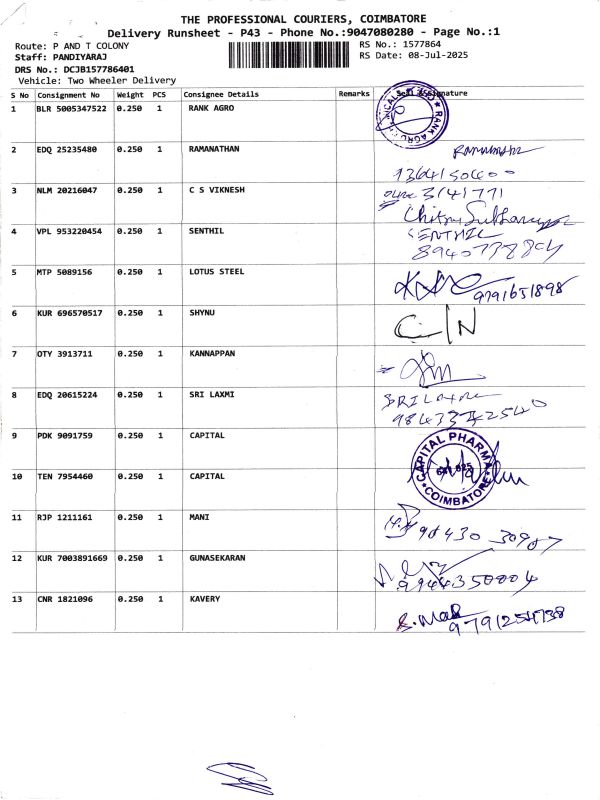 THE PROFESSIONAL COURIERS, COIMBATORE
Delivery Runsheet - P43 - Phone No.:9047080280 - Page No.:1
Route: P AND T COLONY
RS No.: 1577864
Staff: PANDIYARAJ
RS Date: 08-Jul-2025
DRS No.: DCJB157786401
Vehicle: Two Wheeler Delivery
S No Consignment No Weight PCS Consignee Details Remarks Seal & Signature
1 BLR 5005347522 0.250 1 RANK AGRO
RANK AGRO
2 EDQ 25235480 0.250 1 RAMANATHAN
3 NLM 20216047 0.250 1 C S VIKNESH
4 VPL 953220454 0.250 1 SENTHIL
SENTHIL
5 MTP 5089156 0.250 1 LOTUS STEEL
9791651898
6 KUR 696570517 0.250 1 SHYNU
C/N
7 OTY 3913711 0.250 1 KANNAPPAN
8 EDQ 20615224 0.250 1 SRI LAXMI
9 PDK 9091759 0.250 1 CAPITAL
CAPITAL PHARMA
COIMBATORE
10 TEN 7954460 0.250 1 CAPITAL
11 RJP 1211161 0.250 1 MANI
98430 30987
12 KUR 7003891669 0.250 1 GUNASEKARAN
9944350004
13 CNR 1821096 0.250 1 KAVERY
9791254738